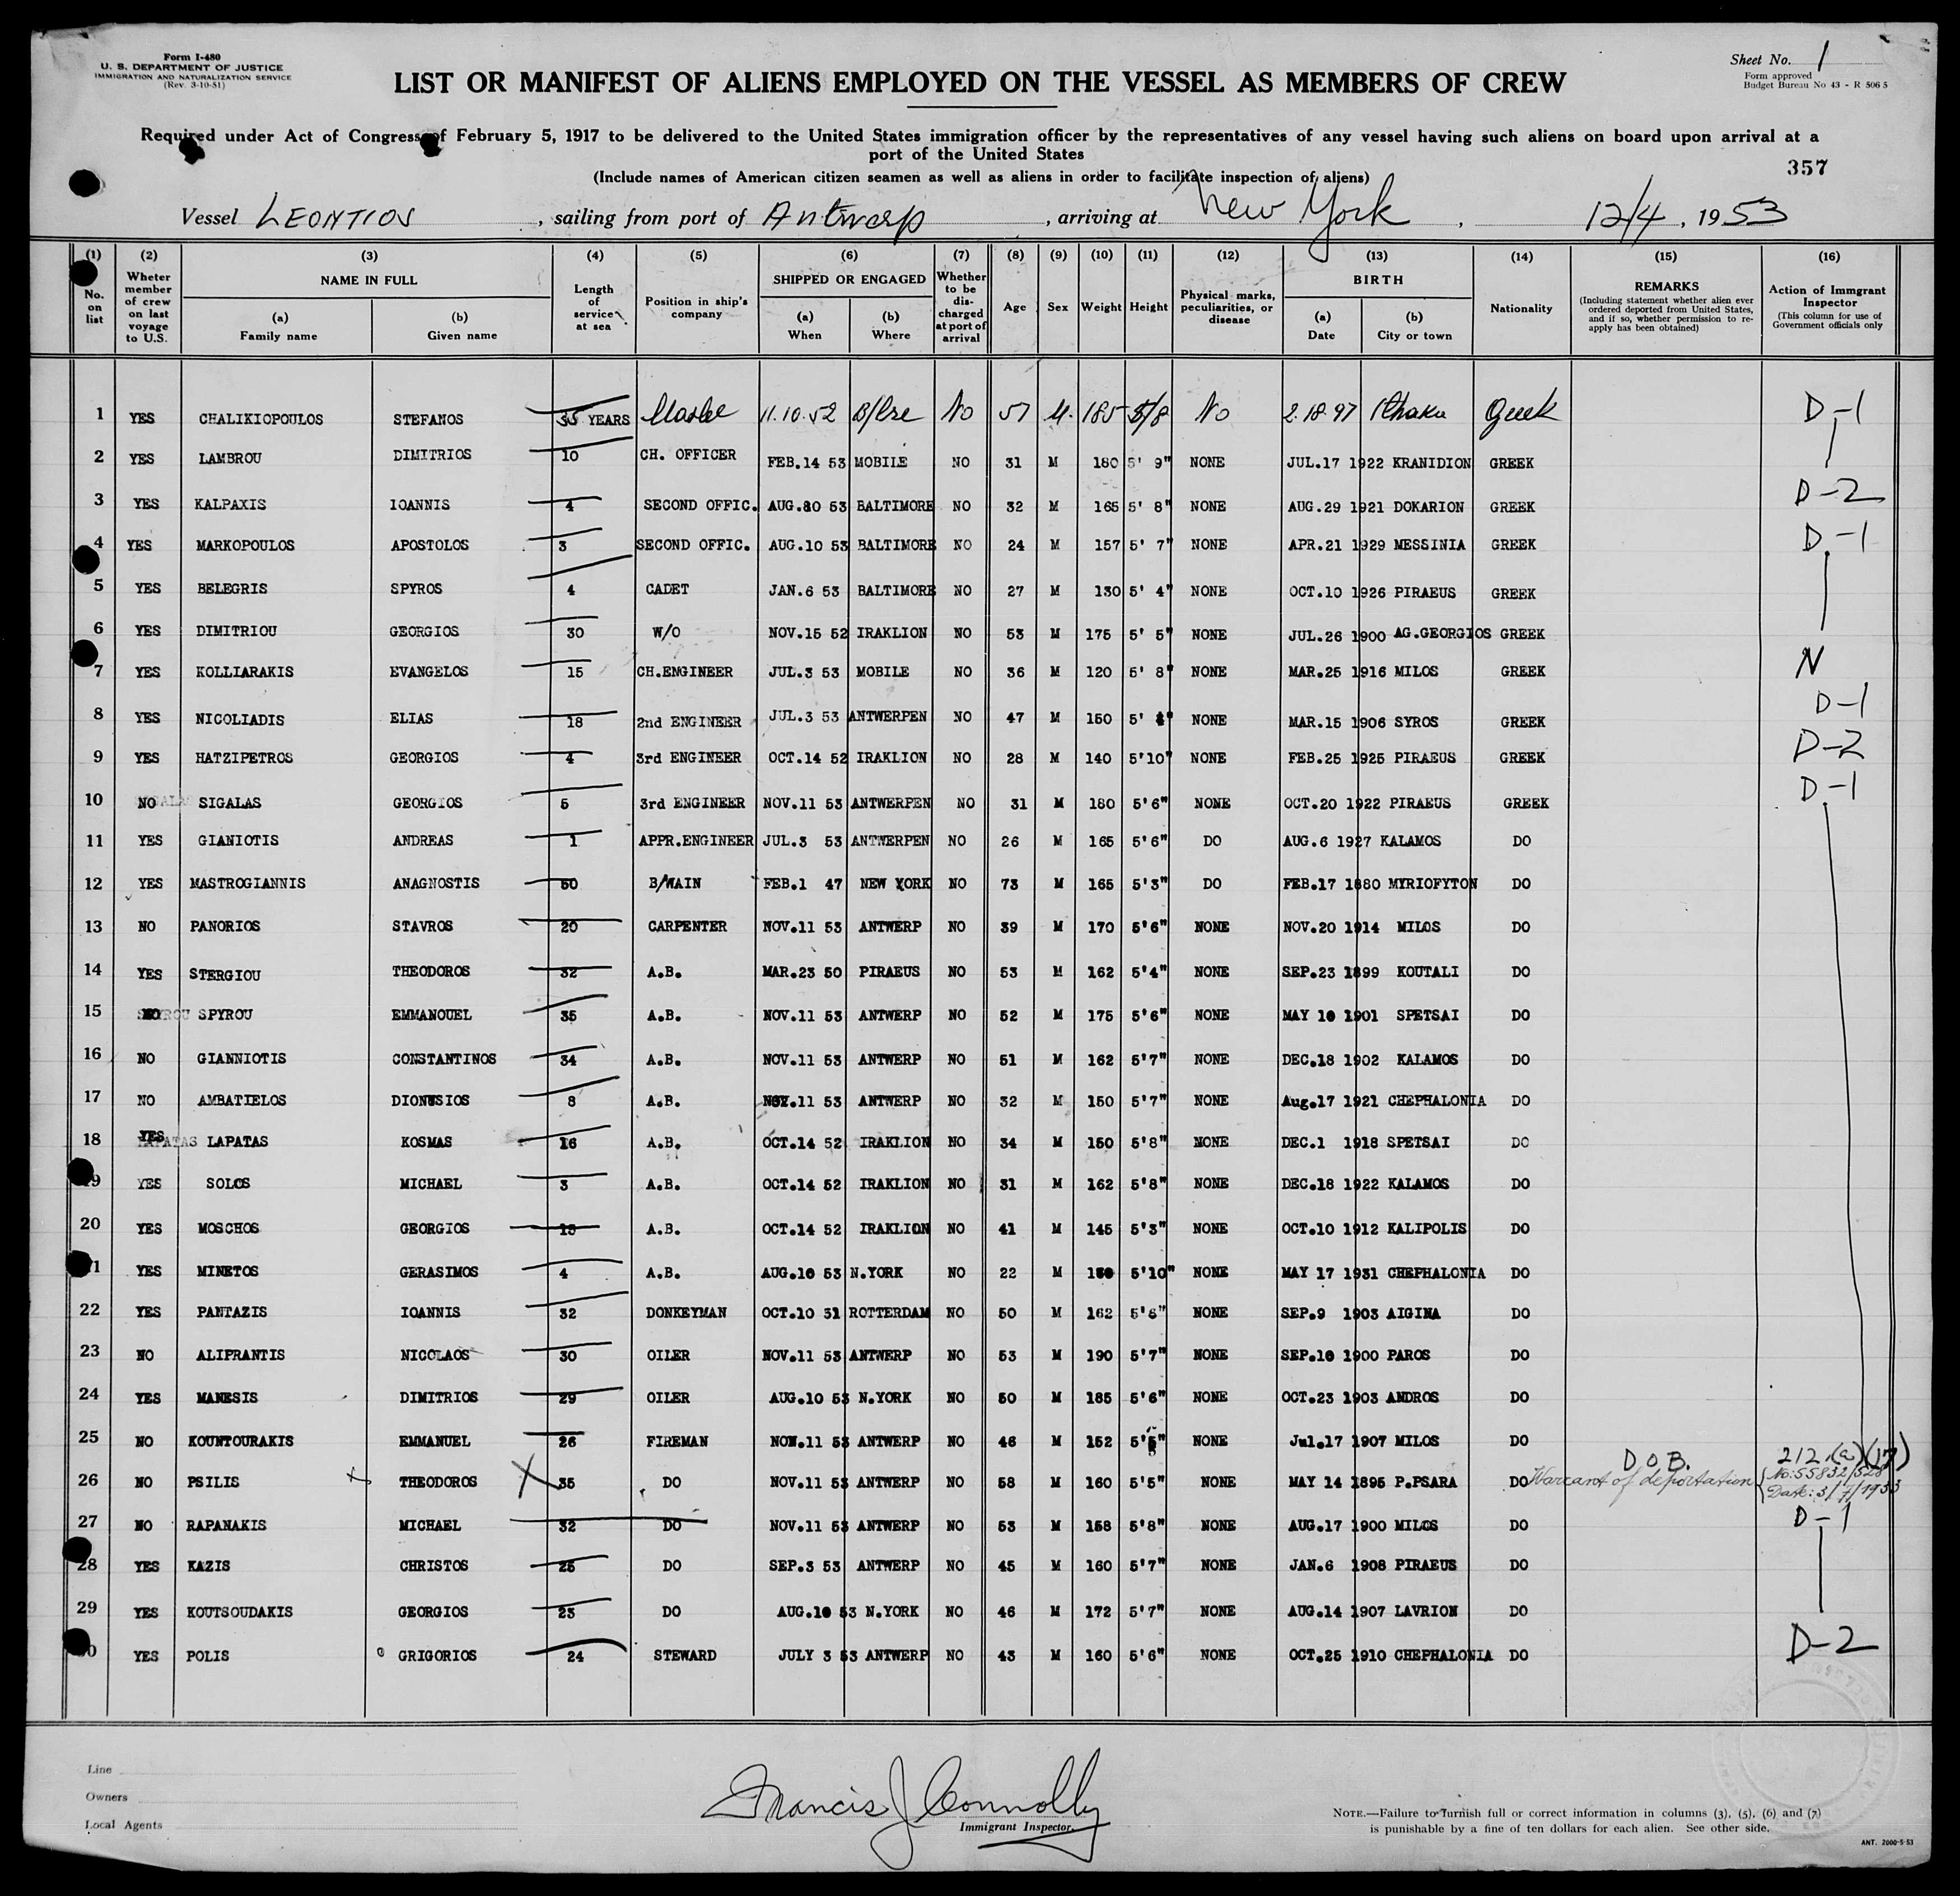 Form I-480
U. S. DEPARTMENT OF JUSTICE
IMMIGRATION AND NATURALIZATION SERVICE
(Rev. 3-10-51)
Sheet No. 1
Form approved
Budget Bureau No 43 - R 506 5
LIST OR MANIFEST OF ALIENS EMPLOYED ON THE VESSEL AS MEMBERS OF CREW
Required under Act of Congress of February 5, 1917 to be delivered to the United States immigration officer by the representatives of any vessel having such aliens on board upon arrival at a
port of the United States
357
(Include names of American citizen seamen as well as aliens in order to facilitate inspection of aliens)
Vessel LEONTIOS, sailing from port of Antwerp, arriving at New York, 12/4, 1953
(1) (2) (3) (4) (5) (6) (7) (8) (9) (10) (11) (12) (13) (14) (15) (16)
No. on list
Wheter member of crew on last voyage to U.S.
NAME IN FULL
(a) Family name
(b) Given name
Length of service at sea
Position in ship's company
SHIPPED OR ENGAGED
(a) When
(b) Where
Whether to be dis-charged at port of arrival
Age
Sex
Weight
Height
Physical marks, peculiarities, or disease
BIRTH
(a) Date
(b) City or town
Nationality
REMARKS
(Including statement whether alien ever ordered deported from United States, and if so, whether permission to re-apply has been obtained)
Action of Immgrant Inspector
(This column for use of Government officials only
1 YES CHALIKIOPOULOS STEFANOS 35 YEARS 11.10.52 No 57 M. 185 5/8 No 2.18.97 Ithaka Greek D-1
2 YES LAMBROU DIMITRIOS 10 CH. OFFICER FEB.14 53 MOBILE NO 31 M 180 5' 9" NONE JUL.17 1922 KRANIDION GREEK
3 YES KALPAXIS IOANNIS 4 SECOND OFFIC. AUG. 53 BALTIMORE NO 32 M 165 5' 8" NONE AUG.29 1921 DOKARION GREEK D-2
4 YES MARKOPOULOS APOSTOLOS 3 SECOND OFFIC. AUG.10 53 BALTIMORE NO 24 M 157 5' 7" NONE APR.21 1929 MESSINIA GREEK D-1
5 YES BELEGRIS SPYROS 4 CADET JAN.6 53 BALTIMORE NO 27 M 130 5' 4" NONE OCT.10 1926 PIRAEUS GREEK
6 YES DIMITRIOU GEORGIOS 30 W/O NOV.15 52 IRAKLION NO 53 M 175 5' 5" NONE JUL.26 1900 AG.GEORGIOS GREEK
7 YES KOLLIARAKIS EVANGELOS 15 CH.ENGINEER JUL.3 53 MOBILE NO 36 M 120 5' 8" NONE MAR.25 1916 MILOS GREEK N
8 YES NICOLIADIS ELIAS 18 2nd ENGINEER JUL.3 53 ANTWERPEN NO 47 M 150 5' NONE MAR.15 1906 SYROS GREEK D-1
9 YES HATZIPETROS GEORGIOS 4 3rd ENGINEER OCT.14 52 IRAKLION NO 28 M 140 5'10" NONE FEB.25 1925 PIRAEUS GREEK D-2
10 NO SIGALAS GEORGIOS 5 3rd ENGINEER NOV.11 53 ANTWERPEN NO 31 M 180 5'6" NONE OCT.20 1922 PIRAEUS GREEK D-1
11 YES GIANIOTIS ANDREAS 1 APPR.ENGINEER JUL.3 53 ANTWERPEN NO 26 M 165 5'6" DO AUG.6 1927 KALAMOS DO
12 YES MASTROGIANNIS ANAGNOSTIS 50 B/WAIN FEB.1 47 NEW YORK NO 73 M 165 5'3" DO FEB.17 1880 MYRIOFYTON DO
13 NO PANORIOS STAVROS 20 CARPENTER NOV.11 53 ANTWERP NO 39 M 170 5'6" NONE NOV.20 1914 MILOS DO
14 YES STERGIOU THEODOROS 32 A.B. MAR.23 50 PIRAEUS NO 53 M 162 5'4" NONE SEP.23 1899 KOUTALI DO
15 NO SPYROU EMMANOUEL 35 A.B. NOV.11 53 ANTWERP NO 52 M 175 5'6" NONE MAY 10 1901 SPETSAI DO
16 NO GIANNIOTIS CONSTANTINOS 34 A.B. NOV.11 53 ANTWERP NO 51 M 162 5'7" NONE DEC.18 1902 KALAMOS DO
17 NO AMBATIELOS DIONUSIOS 8 A.B. NOV.11 53 ANTWERP NO 32 M 150 5'7" NONE Aug.17 1921 CHEPHALONIA DO
18 YES LAPATAS KOSMAS 16 A.B. OCT.14 52 IRAKLION NO 34 M 150 5'8" NONE DEC.1 1918 SPETSAI DO
19 YES SOLOS MICHAEL 3 A.B. OCT.14 52 IRAKLION NO 31 M 162 5'8" NONE DEC.18 1922 KALAMOS DO
20 YES MOSCHOS GEORGIOS 15 A.B. OCT.14 52 IRAKLION NO 41 M 145 5'3" NONE OCT.10 1912 KALIPOLIS DO
21 YES MINETOS GERASIMOS 4 A.B. AUG.10 53 N.YORK NO 22 M 5'10" NONE MAY 17 1931 CHEPHALONIA DO
22 YES PANTAZIS IOANNIS 32 DONKEYMAN OCT.10 51 ROTTERDAM NO 50 M 162 5'8" NONE SEP.9 1903 AIGINA DO
23 NO ALIPRANTIS NICOLAOS 30 OILER NOV.11 53 ANTWERP NO 53 M 190 5'7" NONE SEP.10 1900 PAROS DO
24 YES MANESIS DIMITRIOS 29 OILER AUG.10 53 N.YORK NO 50 M 185 5'6" NONE OCT.23 1903 ANDROS DO
25 NO KOUNTOURAKIS EMMANUEL 26 FIREMAN NOV.11 53 ANTWERP NO 46 M 152 5'5" NONE Jul.17 1907 MILOS DO
26 NO PSILIS THEODOROS 35 DO NOV.11 53 ANTWERP NO 58 M 160 5'5" NONE MAY 14 1895 P.PSARA DO D.O.B. Warrant of deportation 212.(a)(17) No:55832/528 Date: 3/7/1953
27 NO RAPANAKIS MICHAEL 32 DO NOV.11 53 ANTWERP NO 53 M 158 5'8" NONE AUG.17 1900 MILOS DO D-1
28 YES KAZIS CHRISTOS 25 DO SEP.3 53 ANTWERP NO 45 M 160 5'7" NONE JAN.6 1908 PIRAEUS DO
29 YES KOUTSOUDAKIS GEORGIOS 23 DO AUG.10 53 N.YORK NO 46 M 172 5'7" NONE AUG.14 1907 LAVRION DO
30 YES POLIS GRIGORIOS 24 STEWARD JULY 3 53 ANTWERP NO 43 M 160 5'6" NONE OCT.25 1910 CHEPHALONIA DO D-2
Line
Owners
Local Agents
Francis J Connolly
Immigrant Inspector.
NOTE.—Failure to furnish full or correct information in columns (3), (5), (6) and (7)
is punishable by a fine of ten dollars for each alien. See other side.
ANT. 2000-5-53